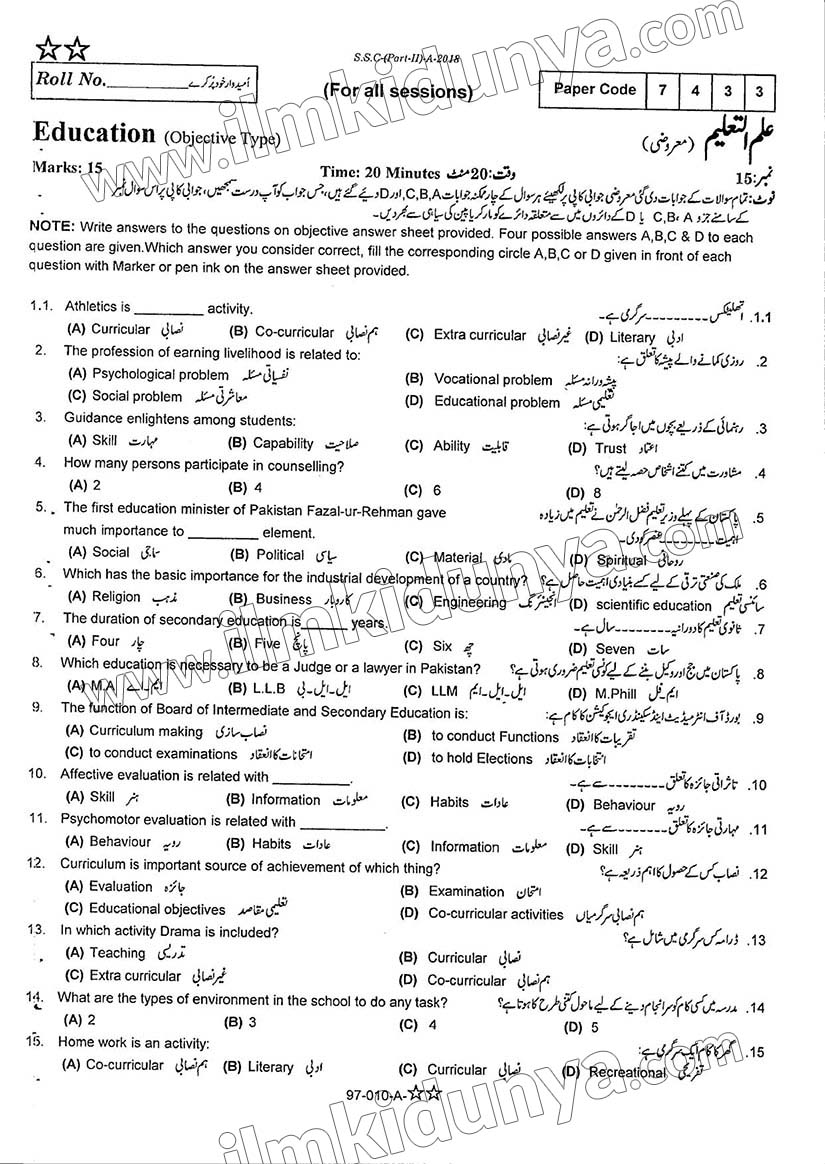 S.S.C-(Part-II)-A-2018
Roll No. امیدوار خود پُر کرے
(For all sessions)
Paper Code 7 4 3 3
Education (Objective Type)
علم التعلیم (معروضی)
Marks: 15
Time: 20 Minutes وقت:20 منٹ
نمبر:15
نوٹ: تمام سوالات کے جوابات دی گئی معروضی جوابی کاپی پر لکھیئے ہر سوال کے چار ممکنہ جوابات C,B,A اور D دیئے گئے ہیں، جس جواب کو آپ درست سمجھیں، جوابی کاپی پر اس سوال نمبر
کے سامنے جز و C,B،A یا D کے دائروں میں سے متعلقہ دائرے کو مارکر یا پین کی سیاہی سے بھر دیں۔
NOTE: Write answers to the questions on objective answer sheet provided. Four possible answers A,B,C & D to each
question are given.Which answer you consider correct, fill the corresponding circle A,B,C or D given in front of each
question with Marker or pen ink on the answer sheet provided.
1.1. Athletics is __________ activity. اتھلیٹکس۔۔۔۔۔۔۔۔۔سرگرمی ہے۔ .1.1
(A) Curricular نصابی (B) Co-curricular ہم نصابی (C) Extra curricular غیر نصابی (D) Literary ادبی
2. The profession of earning livelihood is related to: روزی کمانے والے پیشہ کا تعلق ہے: .2
(A) Psychological problem نفسیاتی مسئلہ (B) Vocational problem پیشہ ورانہ مسئلہ
(C) Social problem معاشرتی مسئلہ (D) Educational problem تعلیمی مسئلہ
3. Guidance enlightens among students: رہنمائی کے ذریعے بچوں میں اجاگر ہوتی ہے: .3
(A) Skill مہارت (B) Capability صلاحیت (C) Ability قابلیت (D) Trust اعتماد
4. How many persons participate in counselling? مشاورت میں کتنے اشخاص حصہ لیتے ہیں؟ .4
(A) 2 (B) 4 (C) 6 (D) 8
5. The first education minister of Pakistan Fazal-ur-Rehman gave پاکستان کے پہلے وزیر تعلیم فضل الرحمٰن نے تعلیم میں زیادہ .5
much importance to __________ element. اہمیت۔۔۔۔۔۔۔۔۔عنصر کو دی۔
(A) Social سماجی (B) Political سیاسی (C) Material مادی (D) Spiritual روحانی
6. Which has the basic importance for the industrial development of a country? ملک کی صنعتی ترقی کے لیے کسے بنیادی اہمیت حاصل ہے؟ .6
(A) Religion مذہب (B) Business کاروبار (C) Engineering انجینئرنگ (D) scientific education سائنسی تعلیم
7. The duration of secondary education is_______ years. ثانوی تعلیم کا دورانیہ۔۔۔۔۔۔۔۔۔سال ہے۔ .7
(A) Four چار (B) Five پانچ (C) Six چھ (D) Seven سات
8. Which education is necessary to be a Judge or a lawyer in Pakistan? پاکستان میں جج اور وکیل بننے کے لیے کونسی تعلیم ضروری ہوتی ہے؟ .8
(A) M.A ایم۔اے (B) L.L.B ایل۔ایل۔بی (C) LLM ایل۔ایل۔ایم (D) M.Phill ایم۔فل
9. The function of Board of Intermediate and Secondary Education is: بورڈ آف انٹرمیڈیٹ اینڈ سکینڈری ایجوکیشن کا کام ہے: .9
(A) Curriculum making نصاب سازی (B) to conduct Functions تقریبات کا انعقاد
(C) to conduct examinations امتحانات کا انعقاد (D) to hold Elections انتخابات کا انعقاد
10. Affective evaluation is related with ___________. تاثراتی جائزہ کا تعلق۔۔۔۔۔۔۔۔۔سے ہے۔ .10
(A) Skill ہنر (B) Information معلومات (C) Habits عادات (D) Behaviour رویہ
11. Psychomotor evaluation is related with ____________. مہارتی جائزہ کا تعلق۔۔۔۔۔۔۔۔۔سے ہے۔ .11
(A) Behaviour رویہ (B) Habits عادات (C) Information معلومات (D) Skill ہنر
12. Curriculum is important source of achievement of which thing? نصاب کس کے حصول کا اہم ذریعہ ہے؟ .12
(A) Evaluation جائزہ (B) Examination امتحان
(C) Educational objectives تعلیمی مقاصد (D) Co-curricular activities ہم نصابی سرگرمیاں
13. In which activity Drama is included? ڈرامہ کس سرگرمی میں شامل ہے؟ .13
(A) Teaching تدریسی (B) Curricular نصابی
(C) Extra curricular غیر نصابی (D) Co-curricular ہم نصابی
14. What are the types of environment in the school to do any task? مدرسہ میں کسی کام کو سرانجام دینے کے لیے ماحول کتنی طرح کا ہوتا ہے؟ .14
(A) 2 (B) 3 (C) 4 (D) 5
15. Home work is an activity: گھر کا کام ایک سرگرمی ہے: .15
(A) Co-curricular ہم نصابی (B) Literary ادبی (C) Curricular نصابی (D) Recreational تفریحی
97-010-A-☆☆
www.ilmkidunya.com
www.ilmkidunya.com
www.ilmkidunya.com
www.ilmkidunya.com